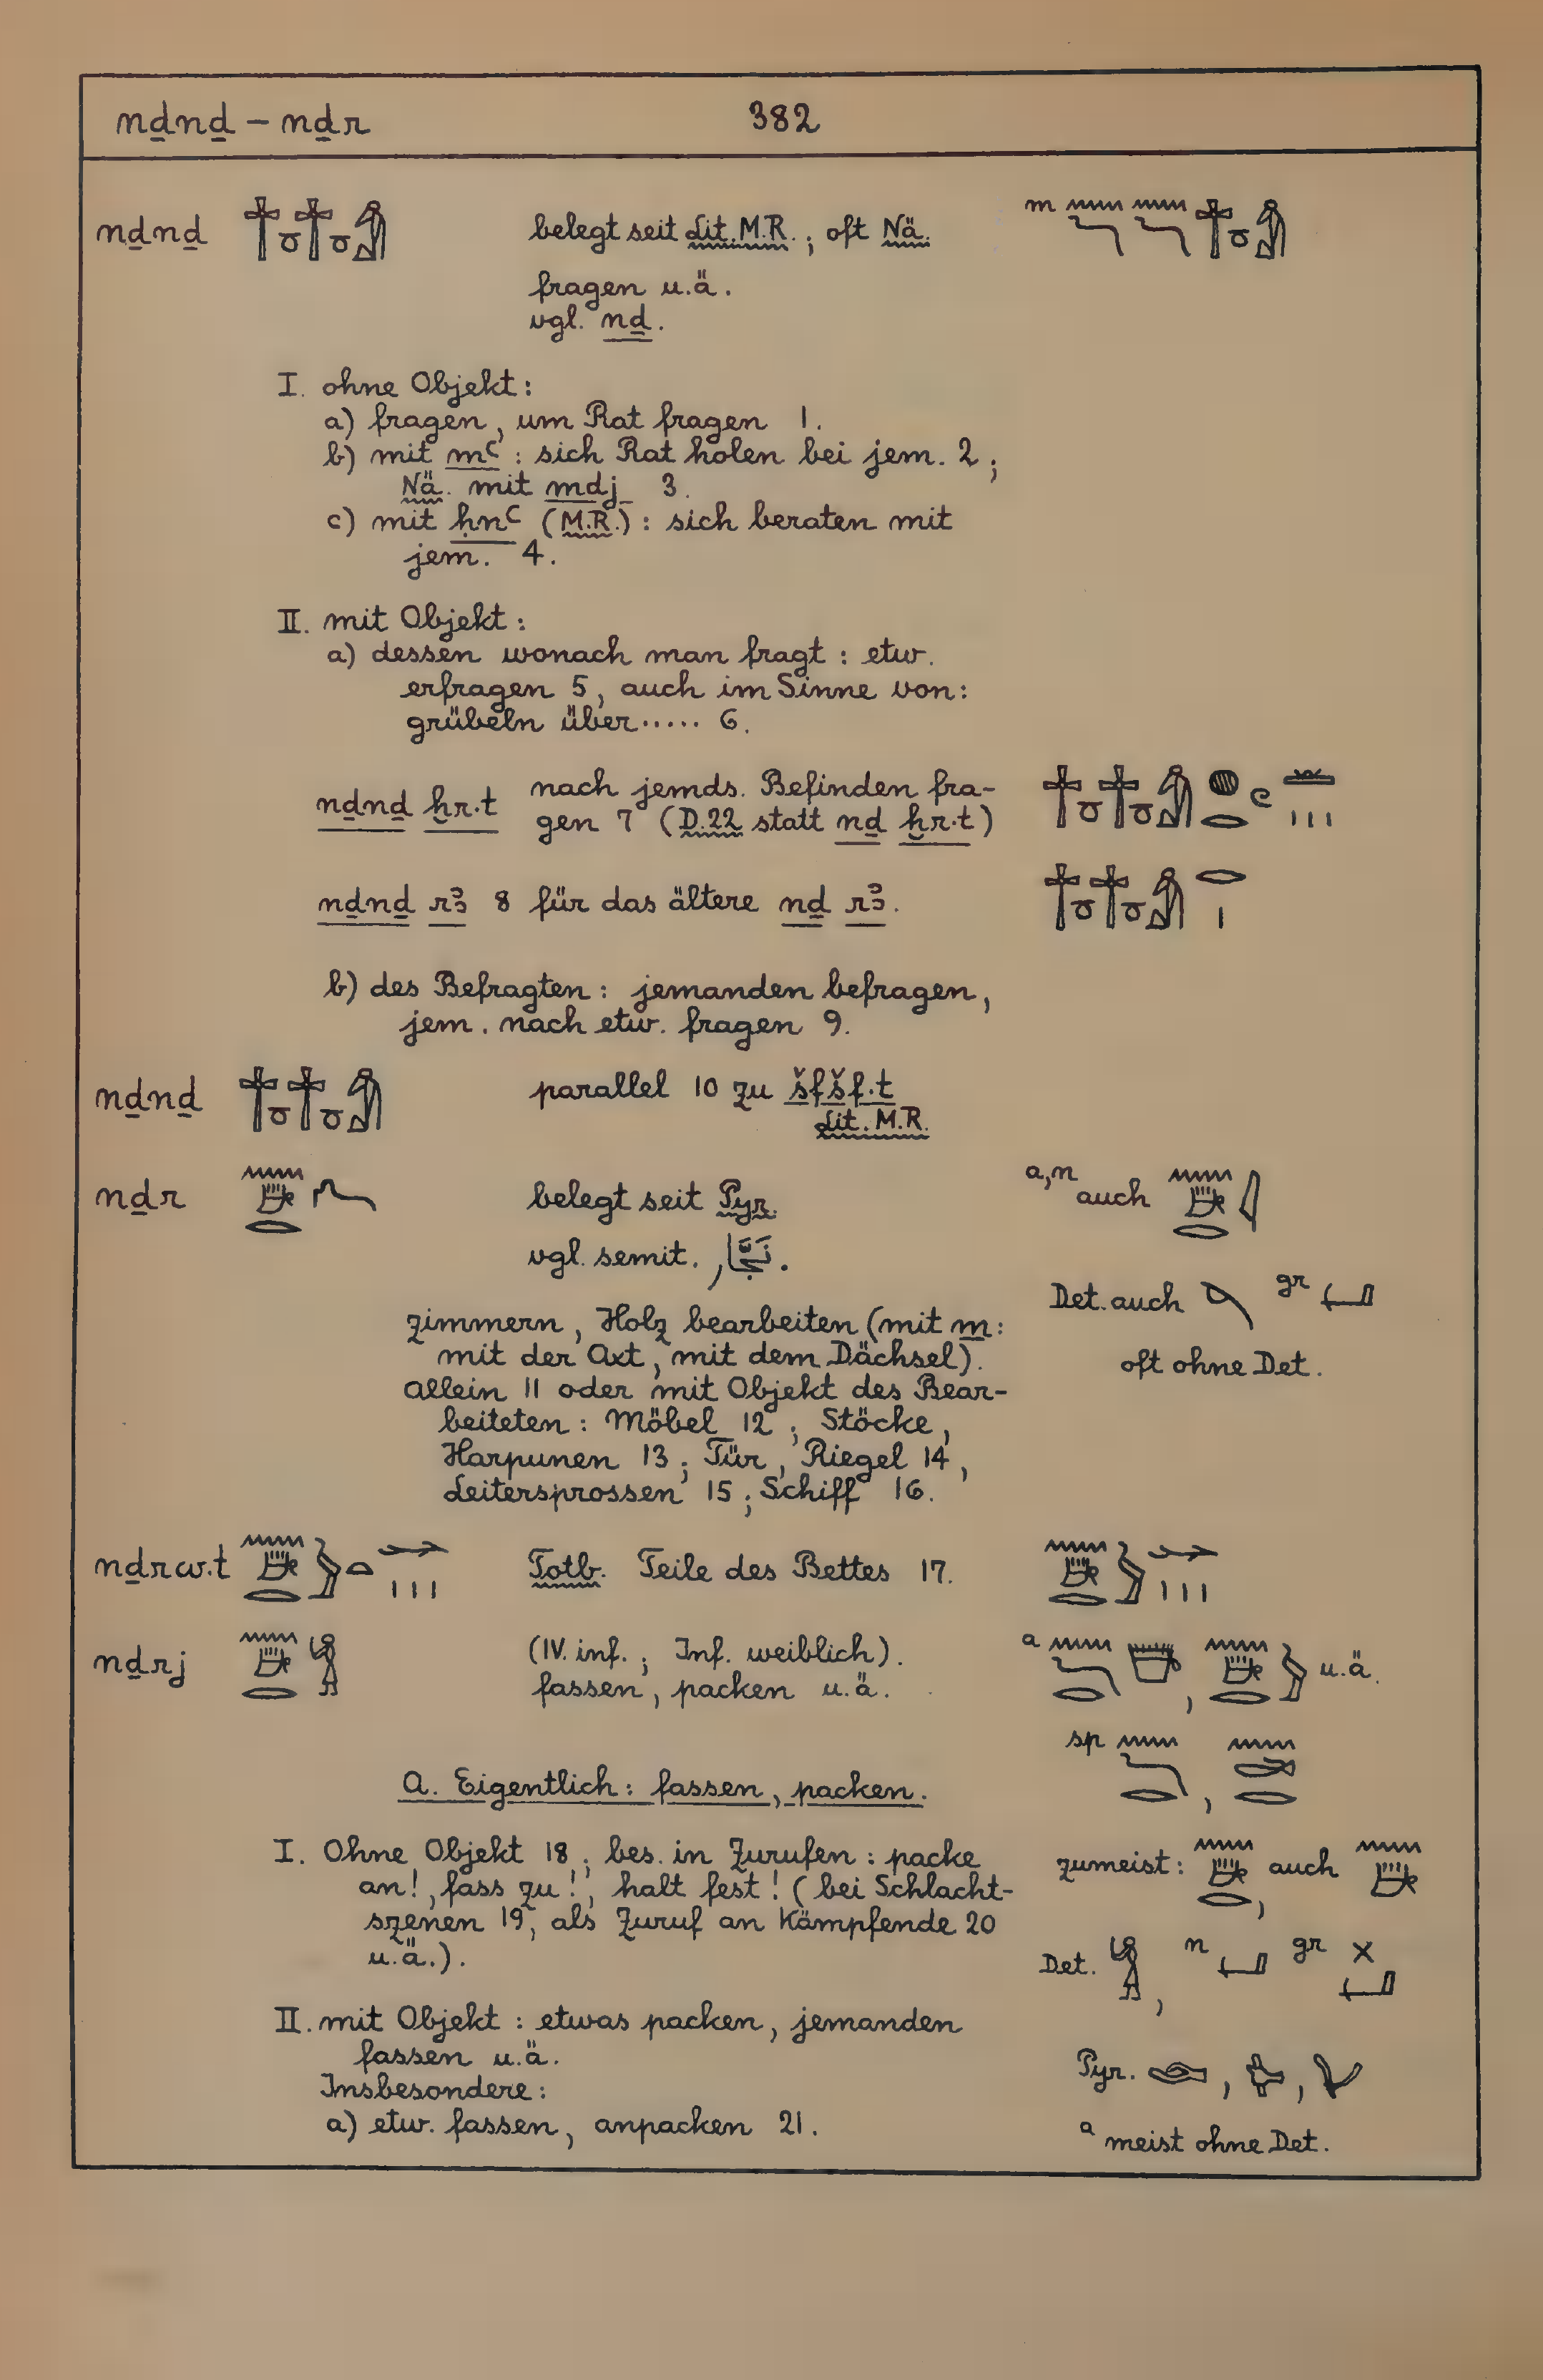 nḏnḏ – nḏr 382
nḏnḏ belegt seit Lit. M.R.; oft Nä. m
fragen u.ä.
vgl. nḏ.
I. ohne Objekt:
a) fragen, um Rat fragen 1.
b) mit mꜥ: sich Rat holen bei jem. 2;
Nä. mit mdj 3.
c) mit ḥnꜥ (M.R.): sich beraten mit
jem. 4.
II. mit Objekt:
a) dessen wonach man fragt: etw.
erfragen 5, auch im Sinne von:
grübeln über ..... 6.
nḏnḏ ḫr·t nach jemds. Befinden fra-
gen 7 (D.22 statt nḏ ḫr·t)
nḏnḏ rꜣ 8 für das ältere nḏ rꜣ.
b) des Befragten: jemanden befragen,
jem. nach etw. fragen 9.
nḏnḏ parallel 10 zu šfšf·t
Lit. M.R.
nḏr belegt seit Pyr. a,n auch
vgl. semit. نَجَّار.
Det. auch gr
zimmern, Holz bearbeiten (mit m:
mit der Axt, mit dem Dächsel). oft ohne Det.
allein 11 oder mit Objekt des Bear-
beiteten: Möbel 12; Stöcke,
Harpunen 13; Tür, Riegel 14,
Leitersprossen 15; Schiff 16.
nḏrw.t Totb. Teile des Bettes 17.
nḏrj (IV. inf.; Inf. weiblich). a , u.ä.
fassen, packen u.ä.
sp ,
A. Eigentlich: fassen, packen.
I. Ohne Objekt 18; bes. in Zurufen: packe zumeist: , auch
an!, fass zu!, halt fest! (bei Schlacht-
szenen 19, als Zuruf an Kämpfende 20
u.ä.). Det. , n gr
II. mit Objekt: etwas packen, jemanden
fassen u.ä. Pyr. , ,
Insbesondere:
a) etw. fassen, anpacken 21. a meist ohne Det.